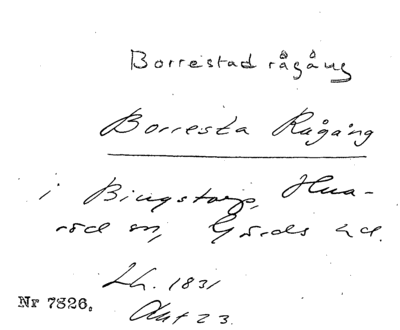 Borrestad rågång
Borresta Rågång
i Bingstorp, Hua-
röd sn, Gärds hd.
Lh. 1831
Akt 23.
Nr 7826.